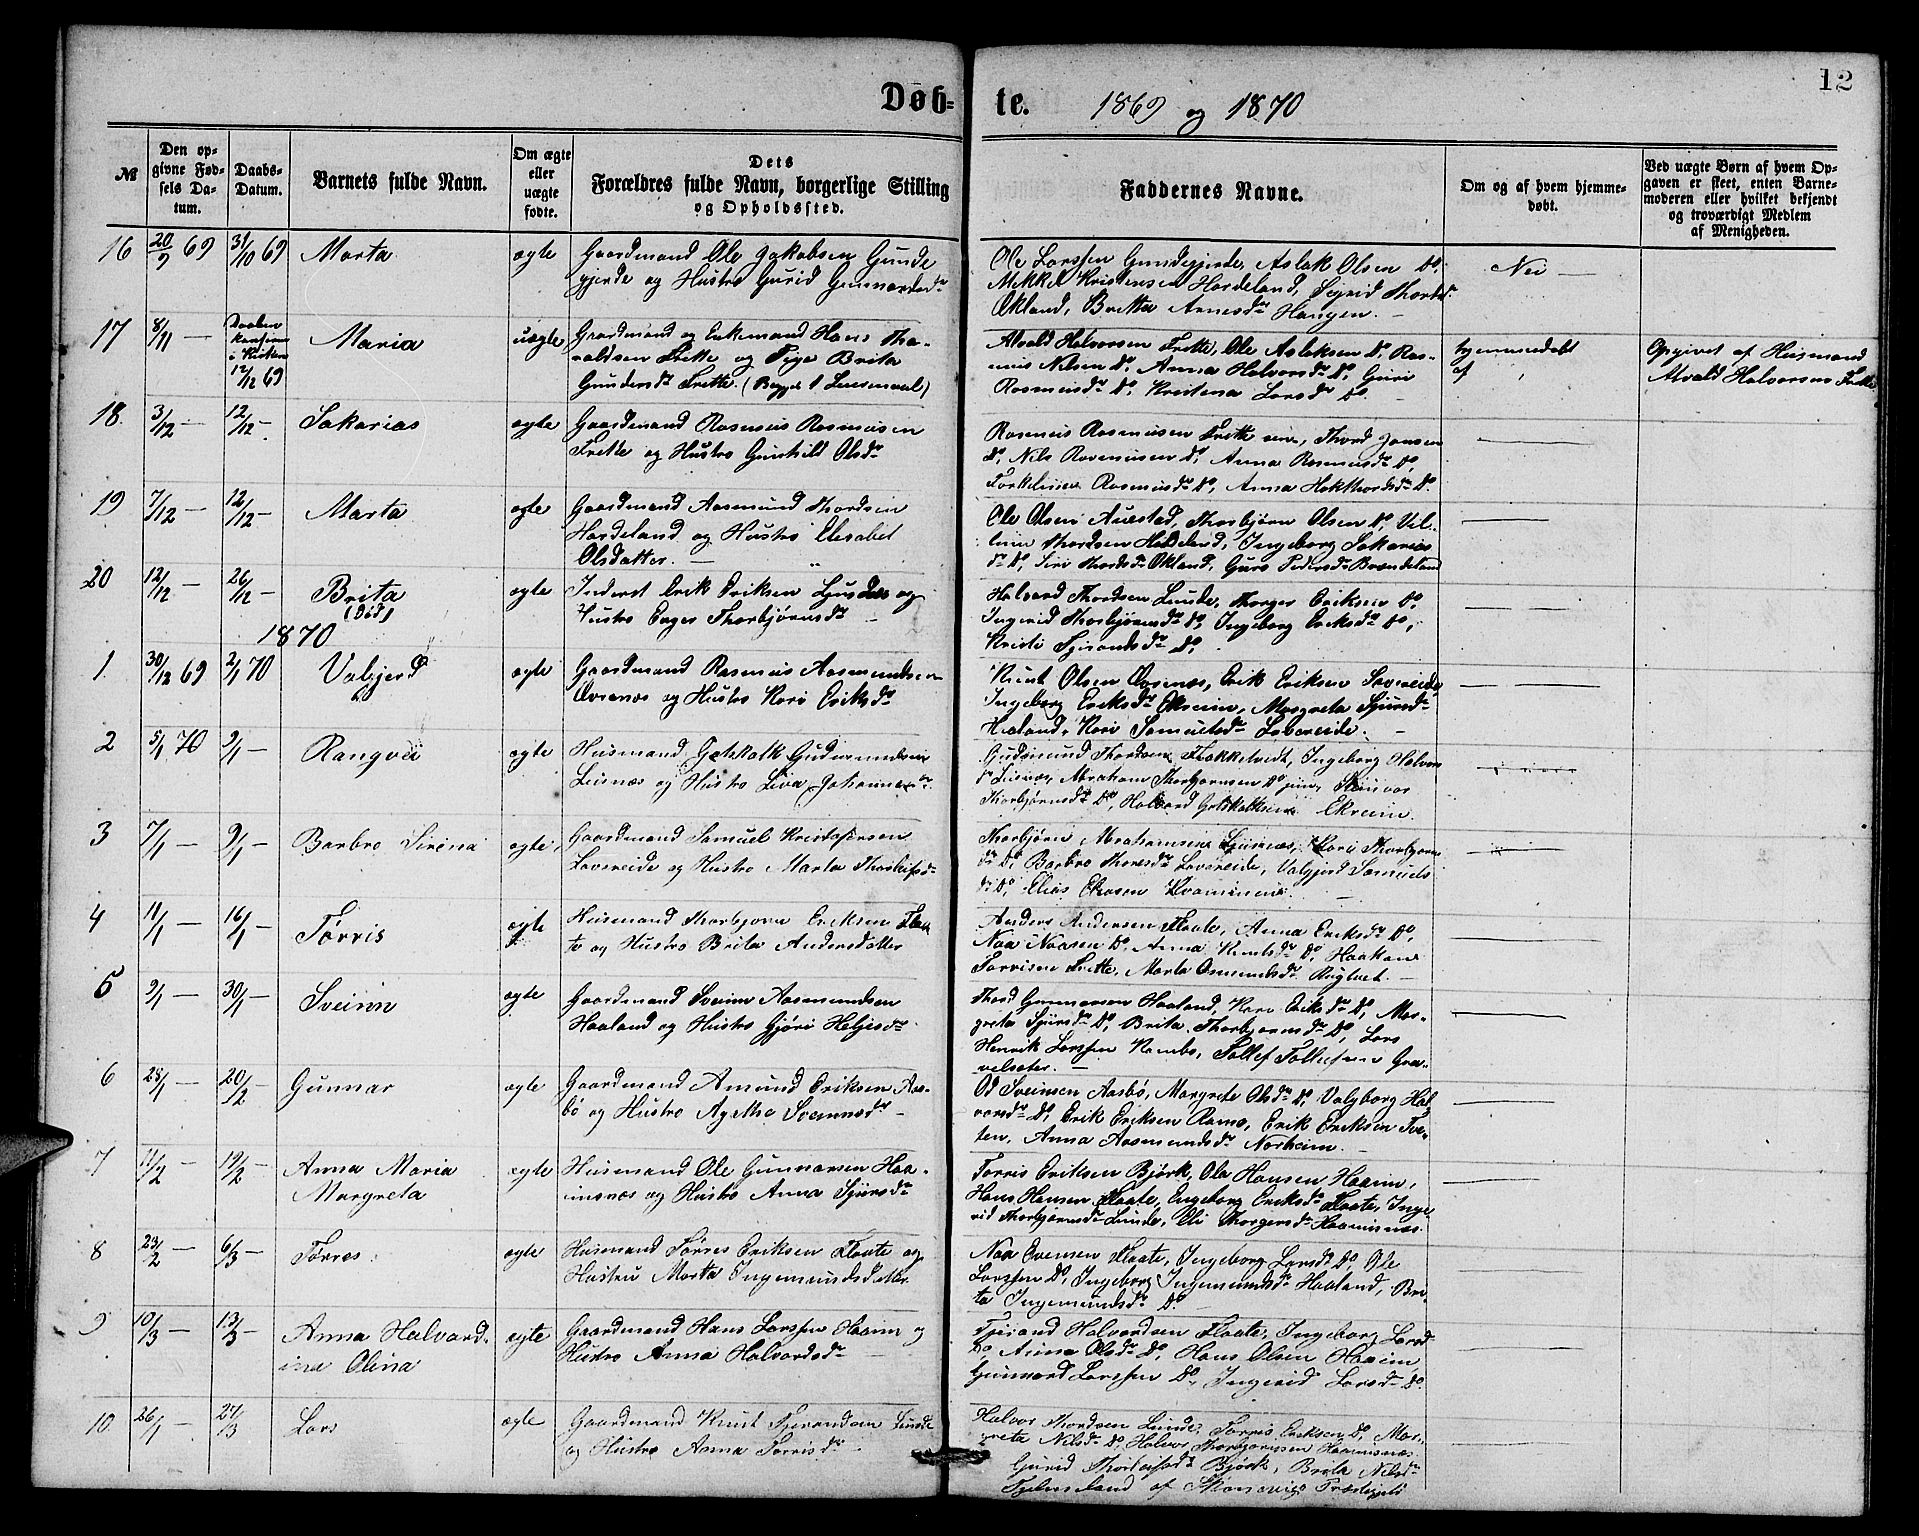 12
Døbte. 1869 og 1870
№
Den opgivne Fødsels Datum.
Daabs-Datum.
Barnets fulde Navn.
Om ægte eller uægte fødte.
Dets Forældres fulde Navn, borgerlige Stilling og Opholdssted.
Faddernes Navne.
Om og af hvem hjemmedøbt.
Ved uægte Børn af hvem Opgaven er skeet, enten Barnemoderen eller hvilket bekjendt og troværdigt Medlem af Menigheden.
16 20/9 69 31/10 69 Marta ægte
Gaardmand Ole Jakobsen Gunde
gjerde og Hustro Gurid Gunnarsdr
Ole Larssen Gundegjerde, Aslak Olsen Do,
Mikkel Kristensen Hardeland, Sigrid Thordsdr
Økland, Britta Arnesdr Haugen. —
Nei —
17 8/11 — 12/12 69 Maria uægte
Gaardmand og Enkemand Hans Tho-
raldsen Frette og Pige Brita
Gundersdr Frette. (Begges 1 Leiermaal)
Alvald Halvorsen Frette, Ole Aslaksen Do, Ras-
mus Nilsen Do, Anna Halvorsdr Do, Guri
Rasmusdr Do, Kristina Larsdr Do. —
hjemmedøbt
af
Opgivet af Husmand
Alvald Halvorsen Frette
18. 3/12 — 12/12 — Sakarias ægte
Gaardmand Rasmus Rasmusen
Frette og Hustro Gunhild Olsdr
Rasmus Rasmusen Frette sen., Thord Jansen
Do, Nils Rasmusen Do, Anna Rasmusdr Do,
Rasmusdr Do, Anna Hokthordsdr Do.
19 7/12 — 12/12 — Marta ægte
Gaardmand Aasmund Thordsen
Hardeland og Hustro Elesabet
Olsdatter. —
Ole Olsen Auestad, Thorbjørn Olsen Do, Vil-
Thordsen Hardeland, Ingeborg Sakarias
dr Do, Siri Thordsdr Økland, Guro Pedersdr Brændeland
20 12/12 — 26/12 — Brita ægte
(Død)
Inderst Erik Eriksen Lunde og
Hustro Inger Thorbjørnsdr —
Halvard Thordsen Lunde, Thorger Eriksen Do,
Ingerid Thorbjørnsdr Do, Ingeborg Eriksdr Do,
Kristi Do.
1870
1. 30/12 69 2/1 70 Valgjerd ægte
Gaardmand Rasmus Aasmundsen
Øvrenæs og Hustro Kari Eriksdr
Knut Olsen Øvrenæs, Erik Eriksen Lovereide,
Ingeborg Eriksdr Ekreim, Margreta Sjursdr
Haaland, Kari Samuelsdr Lovereide. —
2 5/1 70 9/1 — Rangvei ægte
Husmand Gotskalk Gudmundsen
Liusnæs og Hustro Liva Johannesdr.
Gudmund Thordsen Flokketvedt, Ingeborg Halvors
dr Liusnæs, Abraham Thorbjørnsen Do, Steinvor
Thorbjørnsdr Do, Halvard Gotskalksen Ekreim.
3 7/1 — 9/1 — Barbro Sirina ægte
Gaardmand Samuel Kristofersen
Lovereide og Hustro Marta Thorleifsdr
Thorbjørn Abrahamsen Liusnæs, Kari Thorbjørns
dr Do, Barbro Thoresdr Lovereide, Valgjerd Samuels
dr Do, Elias Kvammen. —
4 11/1 — 16/1 — Tørris ægte
Husmand Thorbjørn Eriksen Flaa-
te og Hustro Brita Andersdatter
Anders Andersen Flaate, Anna Eriksdr Do,
Naa Naasen Do, Anna Knutsdr Do, Haakon
Tørrisen Frette, Marta Osmundsdr. —
5 9/1 — 30/1 — Sveinn ægte
Gaardmand Sveinn Aasmundsen
Haaland og Hustro Gjøri Heljesdr
Thord Gunnarsen Haaland, Kari Eriksdr Do, Mar-
greta Sjursdr Do, Brita Thorbjørnsdr Do, Lars
Henrik Larssen Rambo, Tollef Tollefsen Gra-
velsæter. —
6 28/1 — 20/2 — Gunnar ægte
Gaardmand Amund Eriksen Aas-
bø og Hustro Agthe Sveinnsdr —
Od Sveinsen Aasbø, Margrete Olsdr Do, Valgborg Hal
vorsdr Do, Erik Eriksen Rame, Erik Eriksen Tve-
ten, Anna Aasmundsdr Norheim. —
7 11/2 — 19/2 — Anna Maria ægte
Margreta
Husmand Ole Gunnarsen Haa-
imsnæs og Hustro Anna Sjursdr
Tørris Eriksen Bjørk, Ole Hansen Haaim,
Hans Hansen Flaate, Ingeborg Eriksdr Flaate, Inge
rid Thorbjørnsdr Lunde, Eli Thorgersdr Haaimsnæs.
8 23/2 — 6/3 — Tørres ægte
Husmand Tørres Eriksen Flaate og
Hustru Marta Ingemundsdatter
Naa Evensen Flaate, Ingeborg Larsdr Do, Ole
Larssen Do, Ingeborg Ingemundsdr Haaland, Bri-
ta Ingemundsdr Do. —
9 10/3 — 13/3 — Anna Halvard- ægte
ina Olina
Gaardmand Hans Larssen Haaim og
Hustro Anna Halvardsdr —
Tjerand Halvardsen Flaate, Ingeborg Larsdr
Do, Anna Olsdr Do, Hans Olsen Haaim,
Gunnard Larssen Do, Ingerid Larsdr Do.
10. 26/1 — 27/3 — Lars ægte
Gaardmand Knut Tjerandsen Lunde
og Hustro Anna Tørrisdr —
Halvor Thordsen Lunde, Tørris Eriksen Do, Mar-
greta Nilsdr Do, Halvor Thorbjørnsen Haaimsnæs,
Gurid Thorleifsdr Bjørk, Brita Nilsdr
Fjelmseland af Skonevigs Præstegjeld